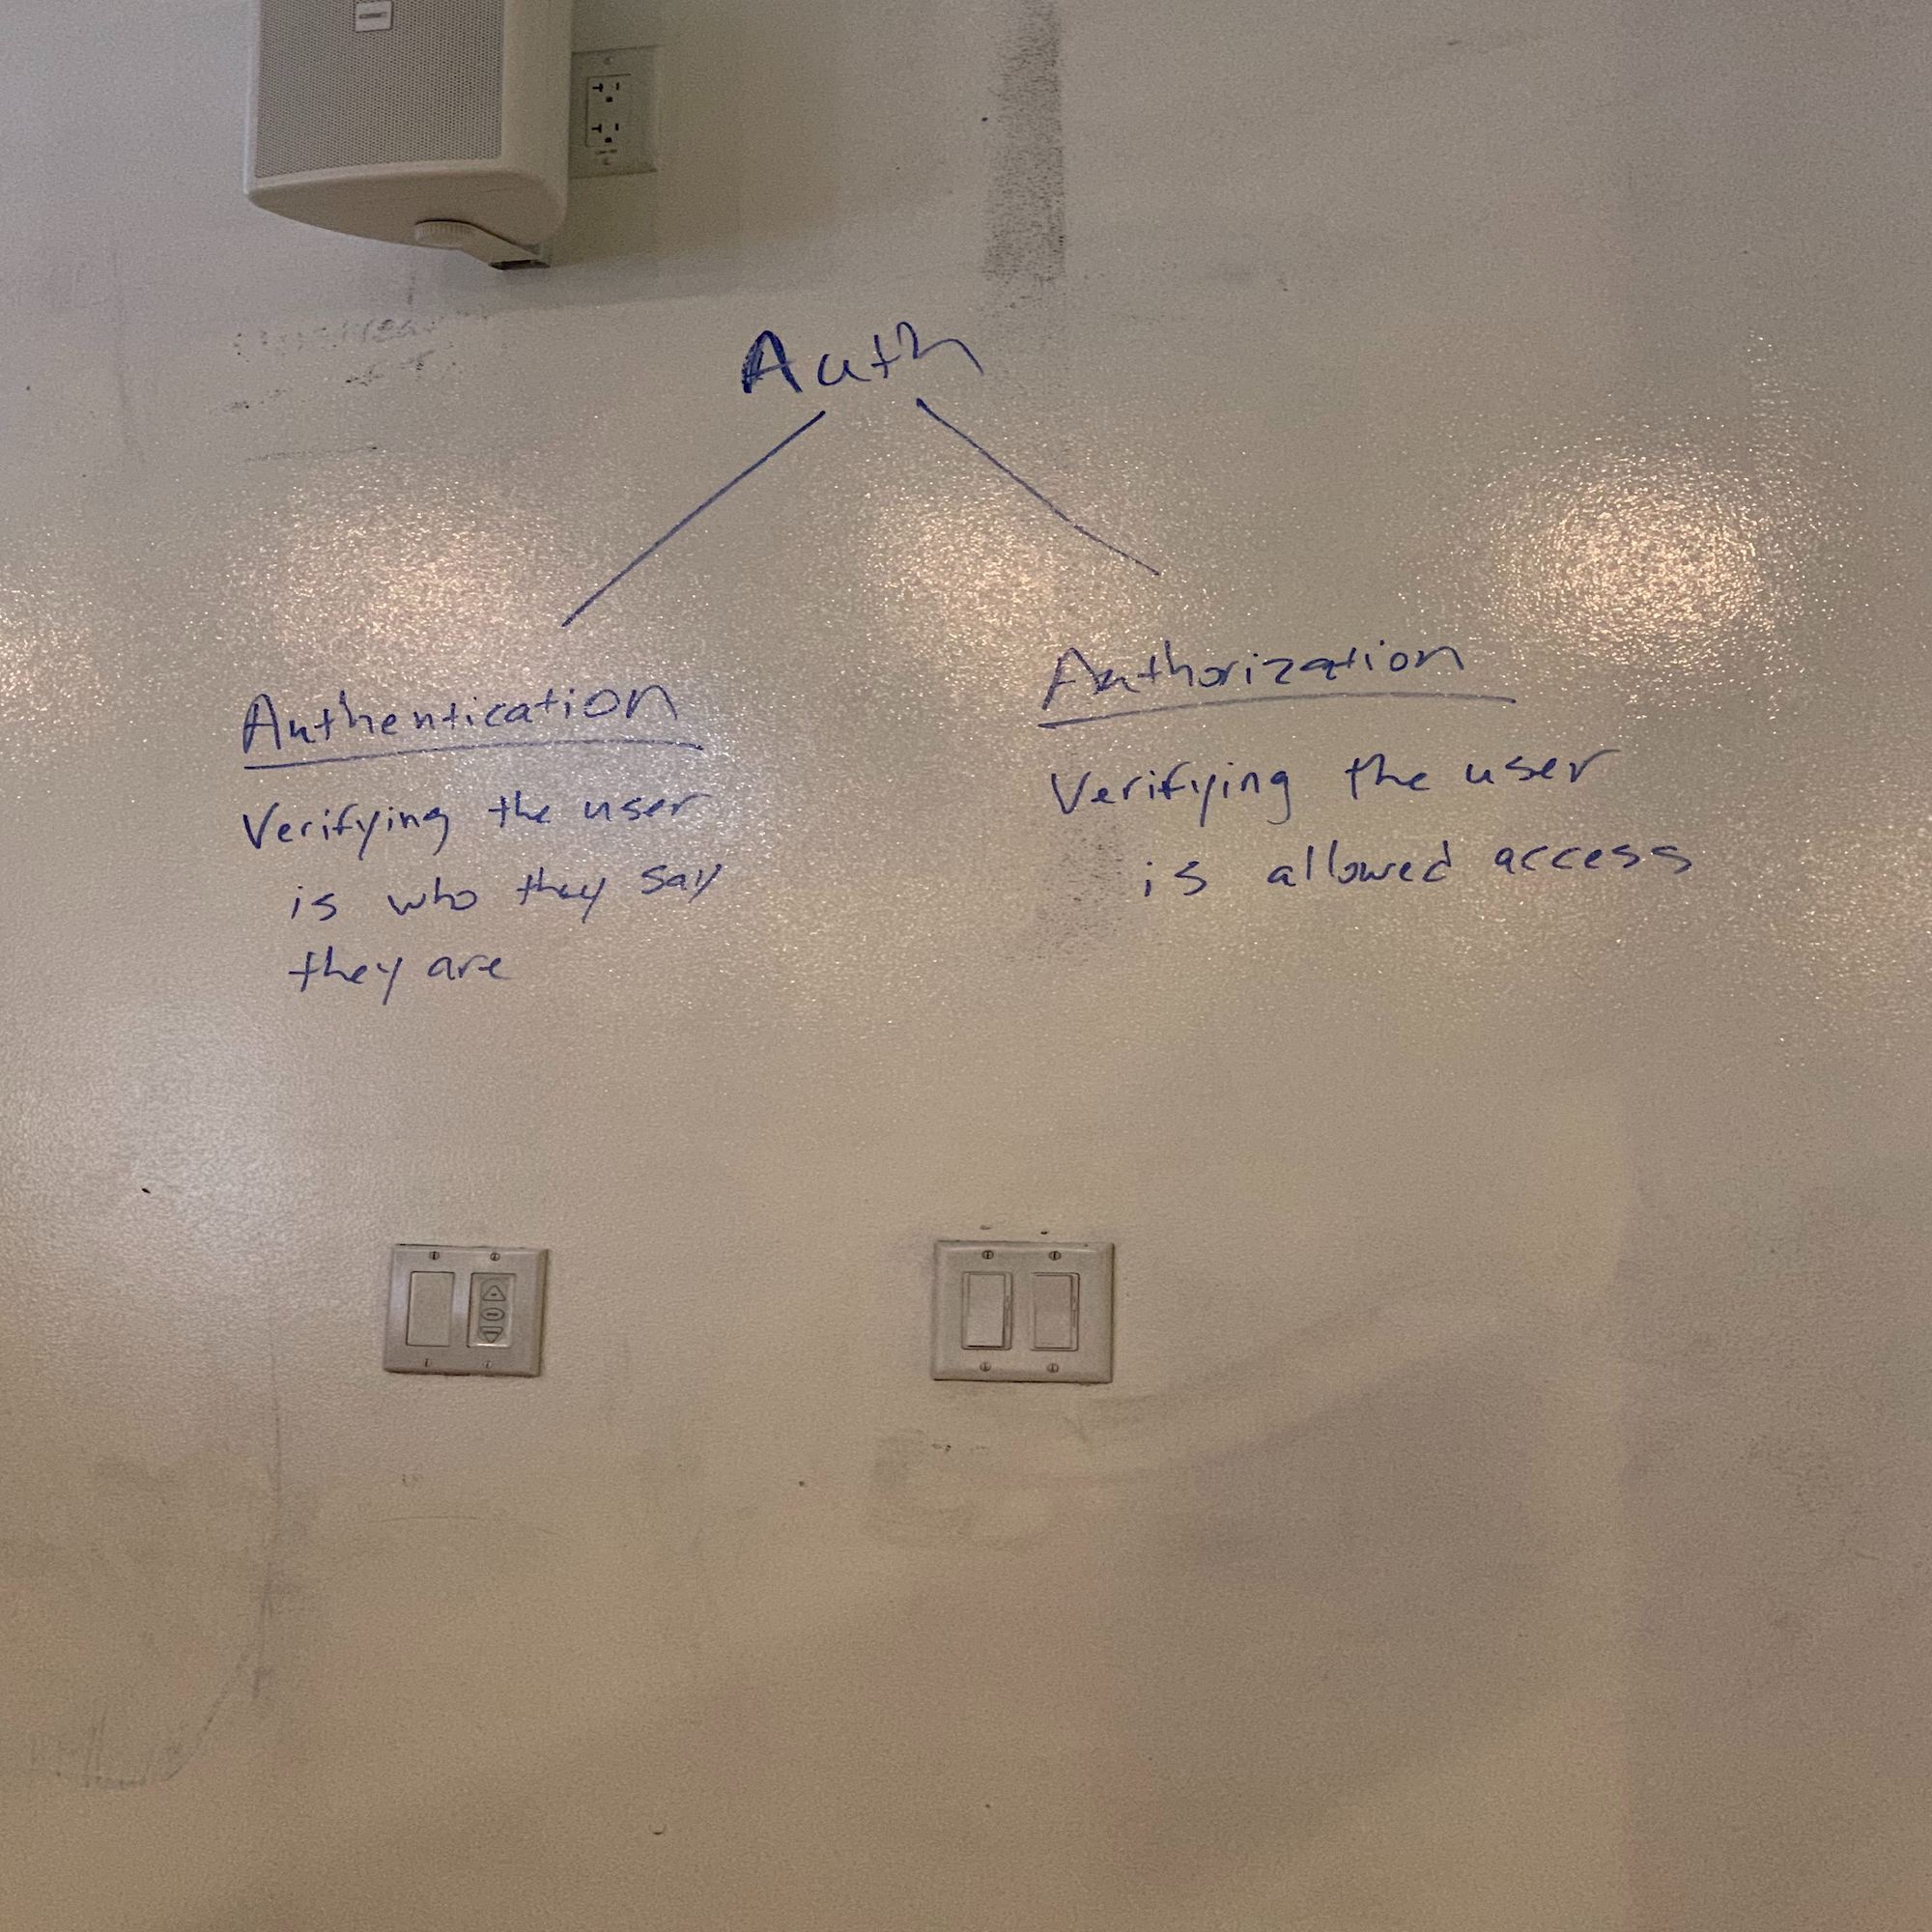 Auth
Authentication
Verifying the user
is who they say
they are
Authorization
Verifying the user
is allowed access